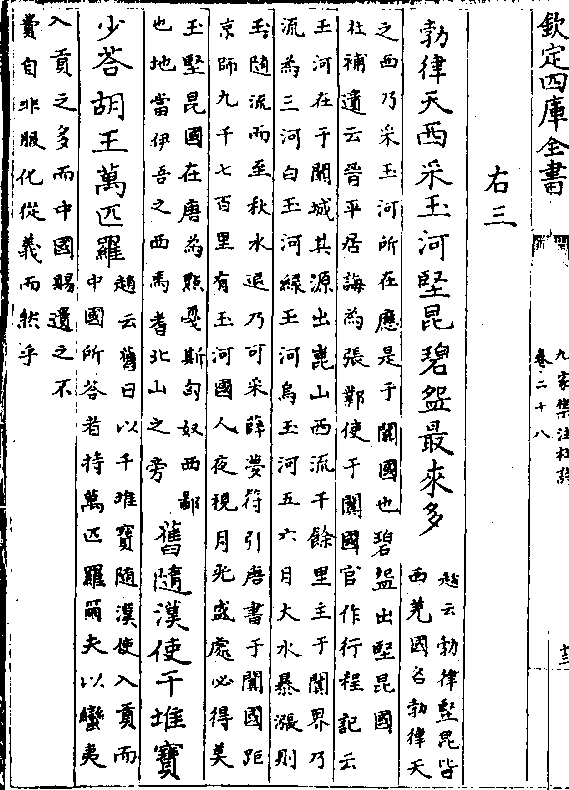 欽定四庫全書
九家集注杜詩
卷二十八
右三
勃律天西采玉河堅昆碧盌最來多
趙云勃律堅昆皆
西羌國名勃律天
之西乃采玉河所在應是于闐國也碧盌出堅昆國
杜補遺云晉平居誨為張鄴使于闐國官作行程記云
玉河在于闐城其源出崑山西流千餘里至于闐界乃
流為三河白玉河綠玉河烏玉河五六月大水暴漲則
玉隨流而至秋水退乃可采薛夢符引唐書于闐國距
京師九千七百里有玉河國人夜視月光盛處必得美
玉堅昆國在唐為黠戛斯匈奴西鄙
也地當伊吾之西焉耆北山之旁
舊隨漢使千堆寶
少答胡王萬匹羅
趙云舊日以千堆寶隨漢使入貢而
中國所答者持萬匹羅爾夫以蠻夷
入貢之多而中國賜遺之不
費自非服化從義而然乎